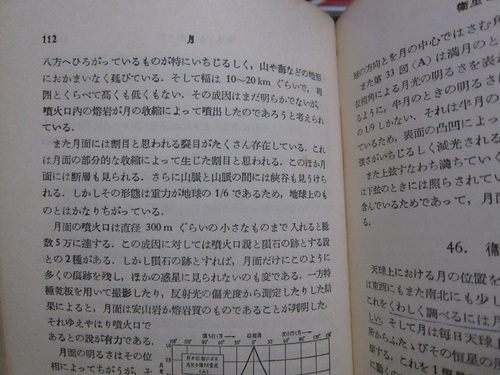 112
月
八方へひろがっているものが特にいちじるしく，山や海などの地形
におかまいなく延びている．そして幅は 10～20 km ぐらいで，周
囲とくらべて高くも低くもない．その成因はまだ明らかでないが，
噴火口内の熔岩が月の収縮によって噴出したのであろうと考えられ
ている．
また月面には割目と思われる裂目がたくさん存在している．これ
は月面の部分的な収縮によって生じた割目と思われる．このほか月
面には断層も見られる．さらに山脈と山脈の間には峡谷も見うけら
れる．しかしその形態は重力が地球の 1/6 であるため，地球上のも
のとはかなりちがっている．
月面の噴火口は直径 300 m ぐらいの小さなものまで入れると総
数5万に達する．この成因に対しては噴火口説と隕石の跡とする説
との2種がある．しかし隕石の跡とすれば，月面だけにこのように
多くの痕跡を残し，ほかの惑星に見られないのも変である．一方特
種乾板を用いて撮影したり，反射光の偏光度から測定したりした結
果によると，月面は安山岩か熔岩質のものであることが判明した．
それゆえやはり噴火口で
あるとの説が有力である．
月面の明るさはその位
相によってちがうが，そ
の方向とを月の中心ではさむ角
また第 33 図 (A) は満月のと
位相角による月光の明るさを表
るように，半月のときの明るさ
の 1/9 しかない．それは半月の
ているため，表面の凸凹によっ
強さがいちじるしく減光される
また上弦すなわち満ちてい
は下弦のときには照らされてい
含んでいるためであって，月
る．
46．
天球上における月の位置を
は東西にもまた南北にも少し
これをくわしく調べるには月
い．そして月は毎日天球上